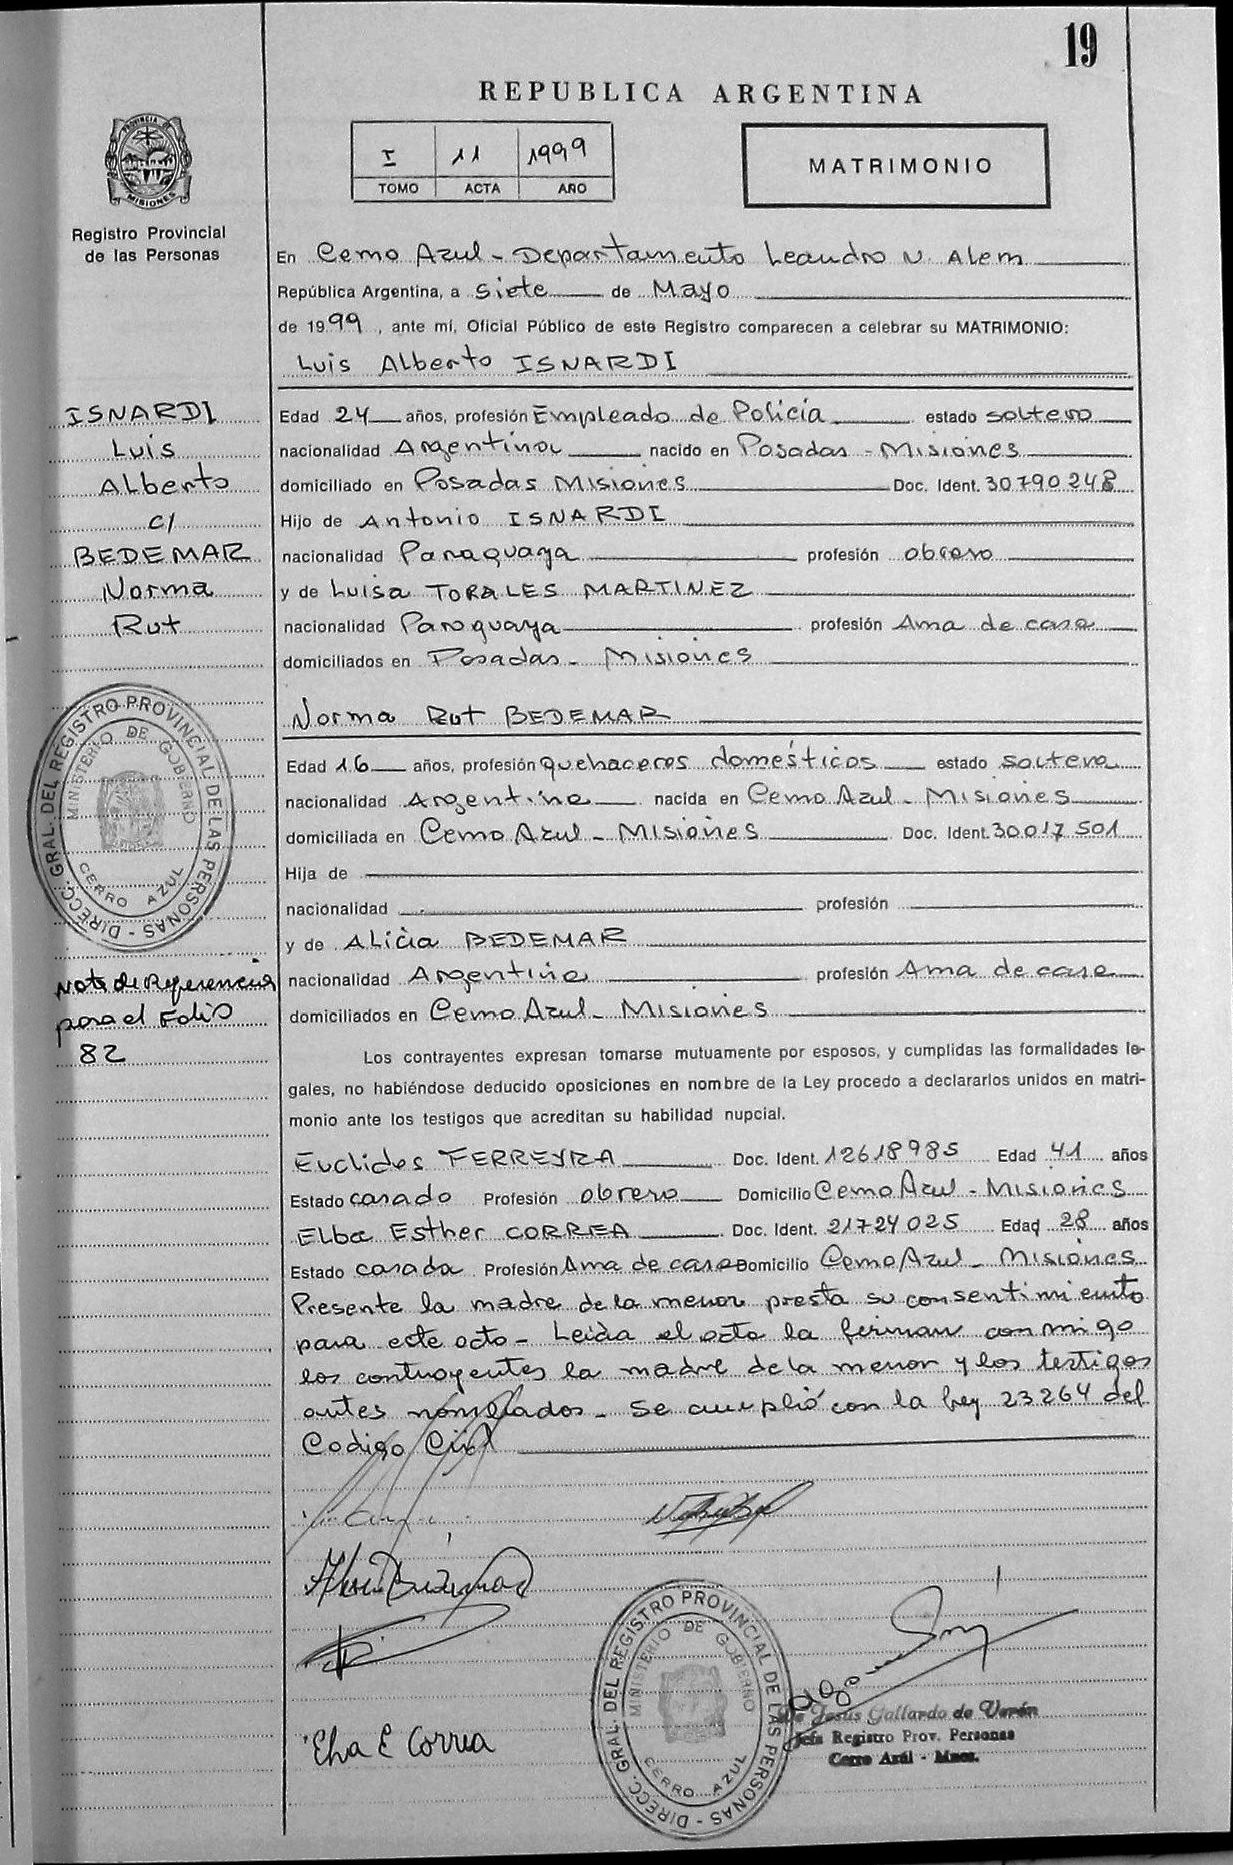 19
REPUBLICA ARGENTINA
I 11 1999
TOMO ACTA AÑO
MATRIMONIO
PROVINCIA DE
MISIONES
Registro Provincial
de las Personas
En Cerro Azul - Departamento Leandro N. Alem
República Argentina, a siete de Mayo
de 1999, ante mí, Oficial Público de este Registro comparecen a celebrar su MATRIMONIO:
Luis Alberto ISNARDI
ISNARDI
Luis
Alberto
c/
BEDEMAR
Norma
Rut
Edad 24 años, profesión Empleado de Policía estado soltero
nacionalidad Argentina nacido en Posadas - Misiones
domiciliado en Posadas Misiones Doc. Ident. 30790248
Hijo de Antonio ISNARDI
nacionalidad Paraguaya profesión obrero
y de Luisa TORALES MARTINEZ
nacionalidad Paraguaya profesión Ama de casa
domiciliados en Posadas - Misiones
Norma Rut BEDEMAR
Edad 16 años, profesión quehaceres domésticos estado soltera
nacionalidad Argentina nacida en Cerro Azul - Misiones
domiciliada en Cerro Azul - Misiones Doc. Ident. 30017501
Hija de
nacionalidad profesión
y de Alicia BEDEMAR
nacionalidad Argentina profesión Ama de casa
domiciliados en Cerro Azul - Misiones
DIRECC. GRAL. DEL REGISTRO PROVINCIAL DE LAS PERSONAS -
MINISTERIO DE GOBIERNO
CERRO AZUL
Nota de Referencia
para el Folio
82
Los contrayentes expresan tomarse mutuamente por esposos, y cumplidas las formalidades le-
gales, no habiéndose deducido oposiciones en nombre de la Ley procedo a declararlos unidos en matri-
monio ante los testigos que acreditan su habilidad nupcial.
Euclides FERREYRA Doc. Ident. 12618985 Edad 41 años
Estado casado Profesión obrero Domicilio Cerro Azul - Misiones
Elba Esther CORREA Doc. Ident. 21724025 Edad 28 años
Estado casada Profesión Ama de casa Domicilio Cerro Azul - Misiones
Presente la madre de la menor presta su consentimiento
para este acto - Leida el acta la firman conmigo
los contrayentes la madre de la menor y los testigos
antes nombrados - Se cumplió con la ley 23264 del
Codigo Civil
Elva E Correa
DIRECC. GRAL. DEL REGISTRO PROVINCIAL DE LAS PERSONAS -
MINISTERIO DE GOBIERNO
CERRO AZUL
De Jesús Gallardo de Verón
Jefa Registro Prov. Personas
Cerro Azúl - Mnes.